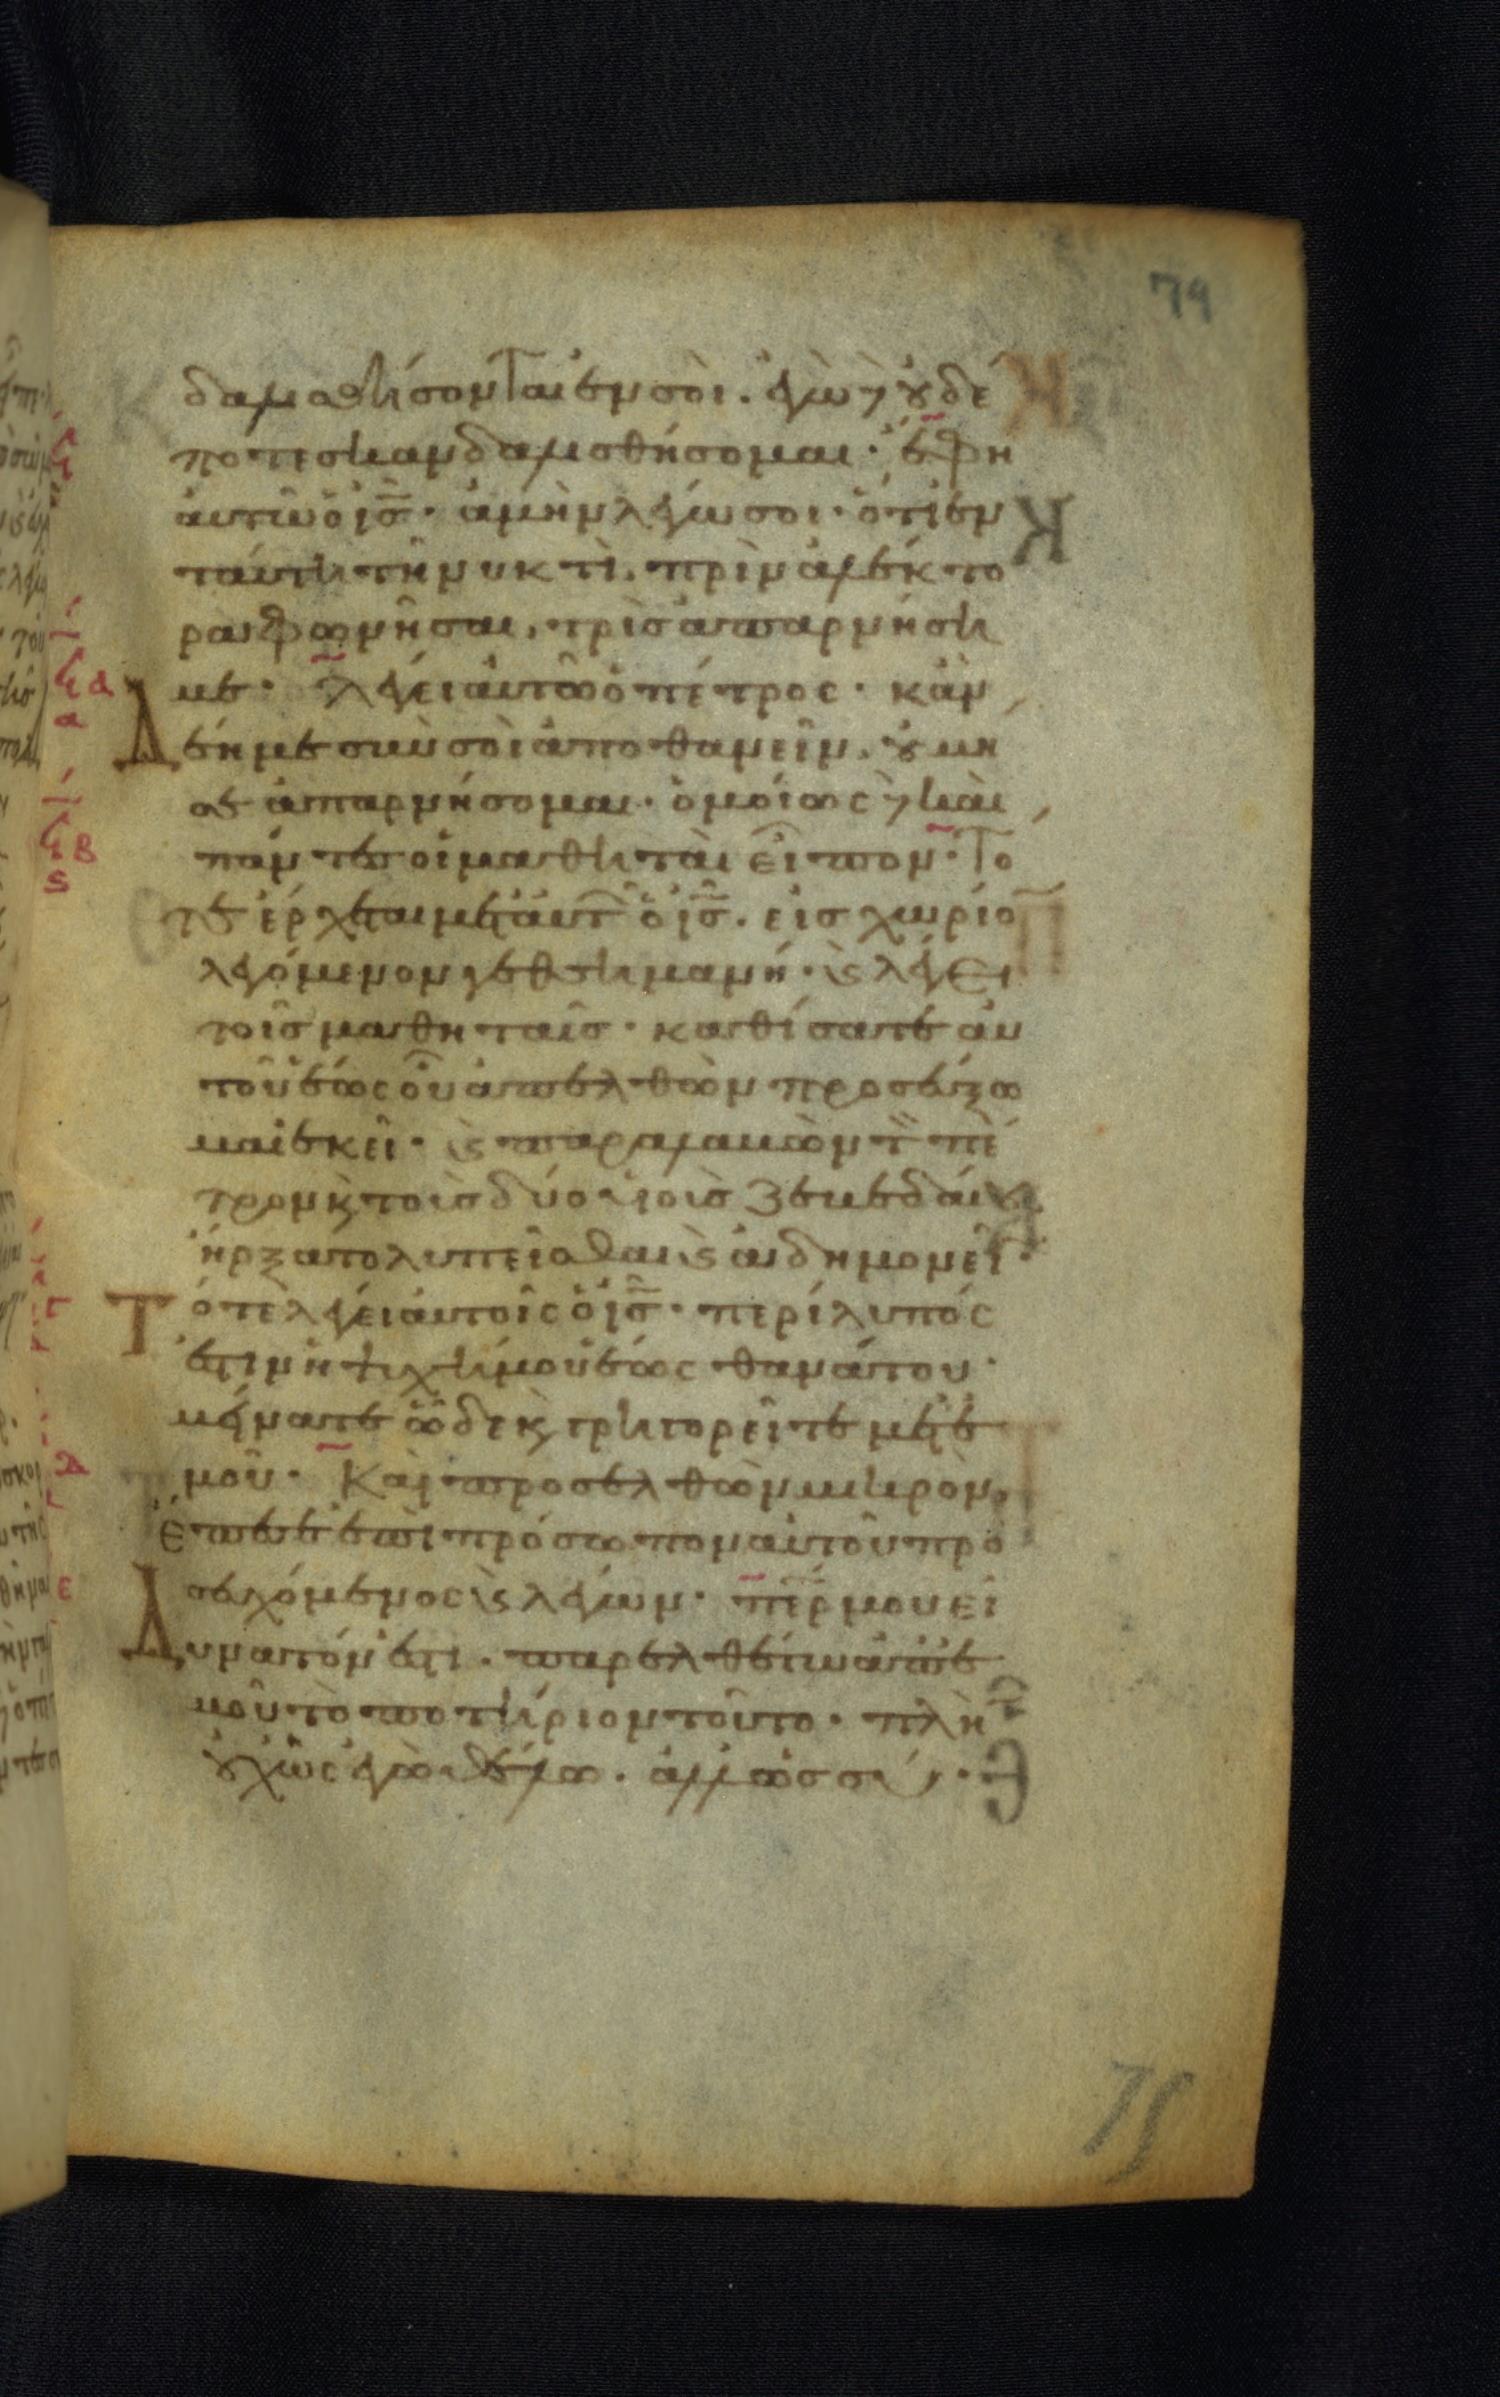 74
δαλισθήσονται ἐν σοὶ· ἐγὼ οὐδέ
ποτε σκανδαλισθήσομαι· ἔφη
ἀυτῶ ὁ ἰς̅· ἀμὴν λέγω σοι· ὅτι ἐν
ταύτη τῆ νυκτὶ, πρὶν ἀλέκτο
ρα φωνῆσαι, τρὶς ἀπαρνήση
με· λέγει ἀυτῶ ὁ πέτρος· κἀν
Δέη με σὺν σοὶ ἀποθανεῖν, οὐ μή
σε ἀπαρνήσομαι· ὁμοίως καὶ
πάντες οἱ μαθηταὶ εἶπον· Τό
τε ἔρχεται μετ ἀυτ ὁ ἰς̅· εἰς χωρίο
λεγόμενον γεθσημανή· ϗ λέγει
τοῖς μαθηταῖς· καθίσατε ἀυ
τοῦ ἕως οὗ ἀπελθὼν προσεύξω
μαι ἐκεῖ· ϗ παραλαβὼν τ πέ
τρον ϗ τοὺς δύο υἱοὺς ζεβεδαίου
ἤρξατο λυπεῖσθαι ϗ ἀδημονεῖ·
Τότε λέγει ἀυτοῖς ὁ ἰς̅· περίλυπός
ἐστιν ἡ ψυχή μου ἕως θανάτου·
μείνατε ὧδε ϗ γρηγορεῖτε μετ ἐ
μοῦ· Καὶ προσελθὼν μικρὸν,
ἔπεσεν ἐπὶ πρόσωπον ἀυτοῦ προ
σευχόμενος ϗ λέγων· πέρ μου εἰ
Δυνατόν ἐστι· παρελθέτω ἀπ ἐ
μοῦ τὸ ποτήριον τοῦτο· πλὴ
οὐχ ὡς ἐγὼ θέλω· ἀλλ ὡς σύ·
75